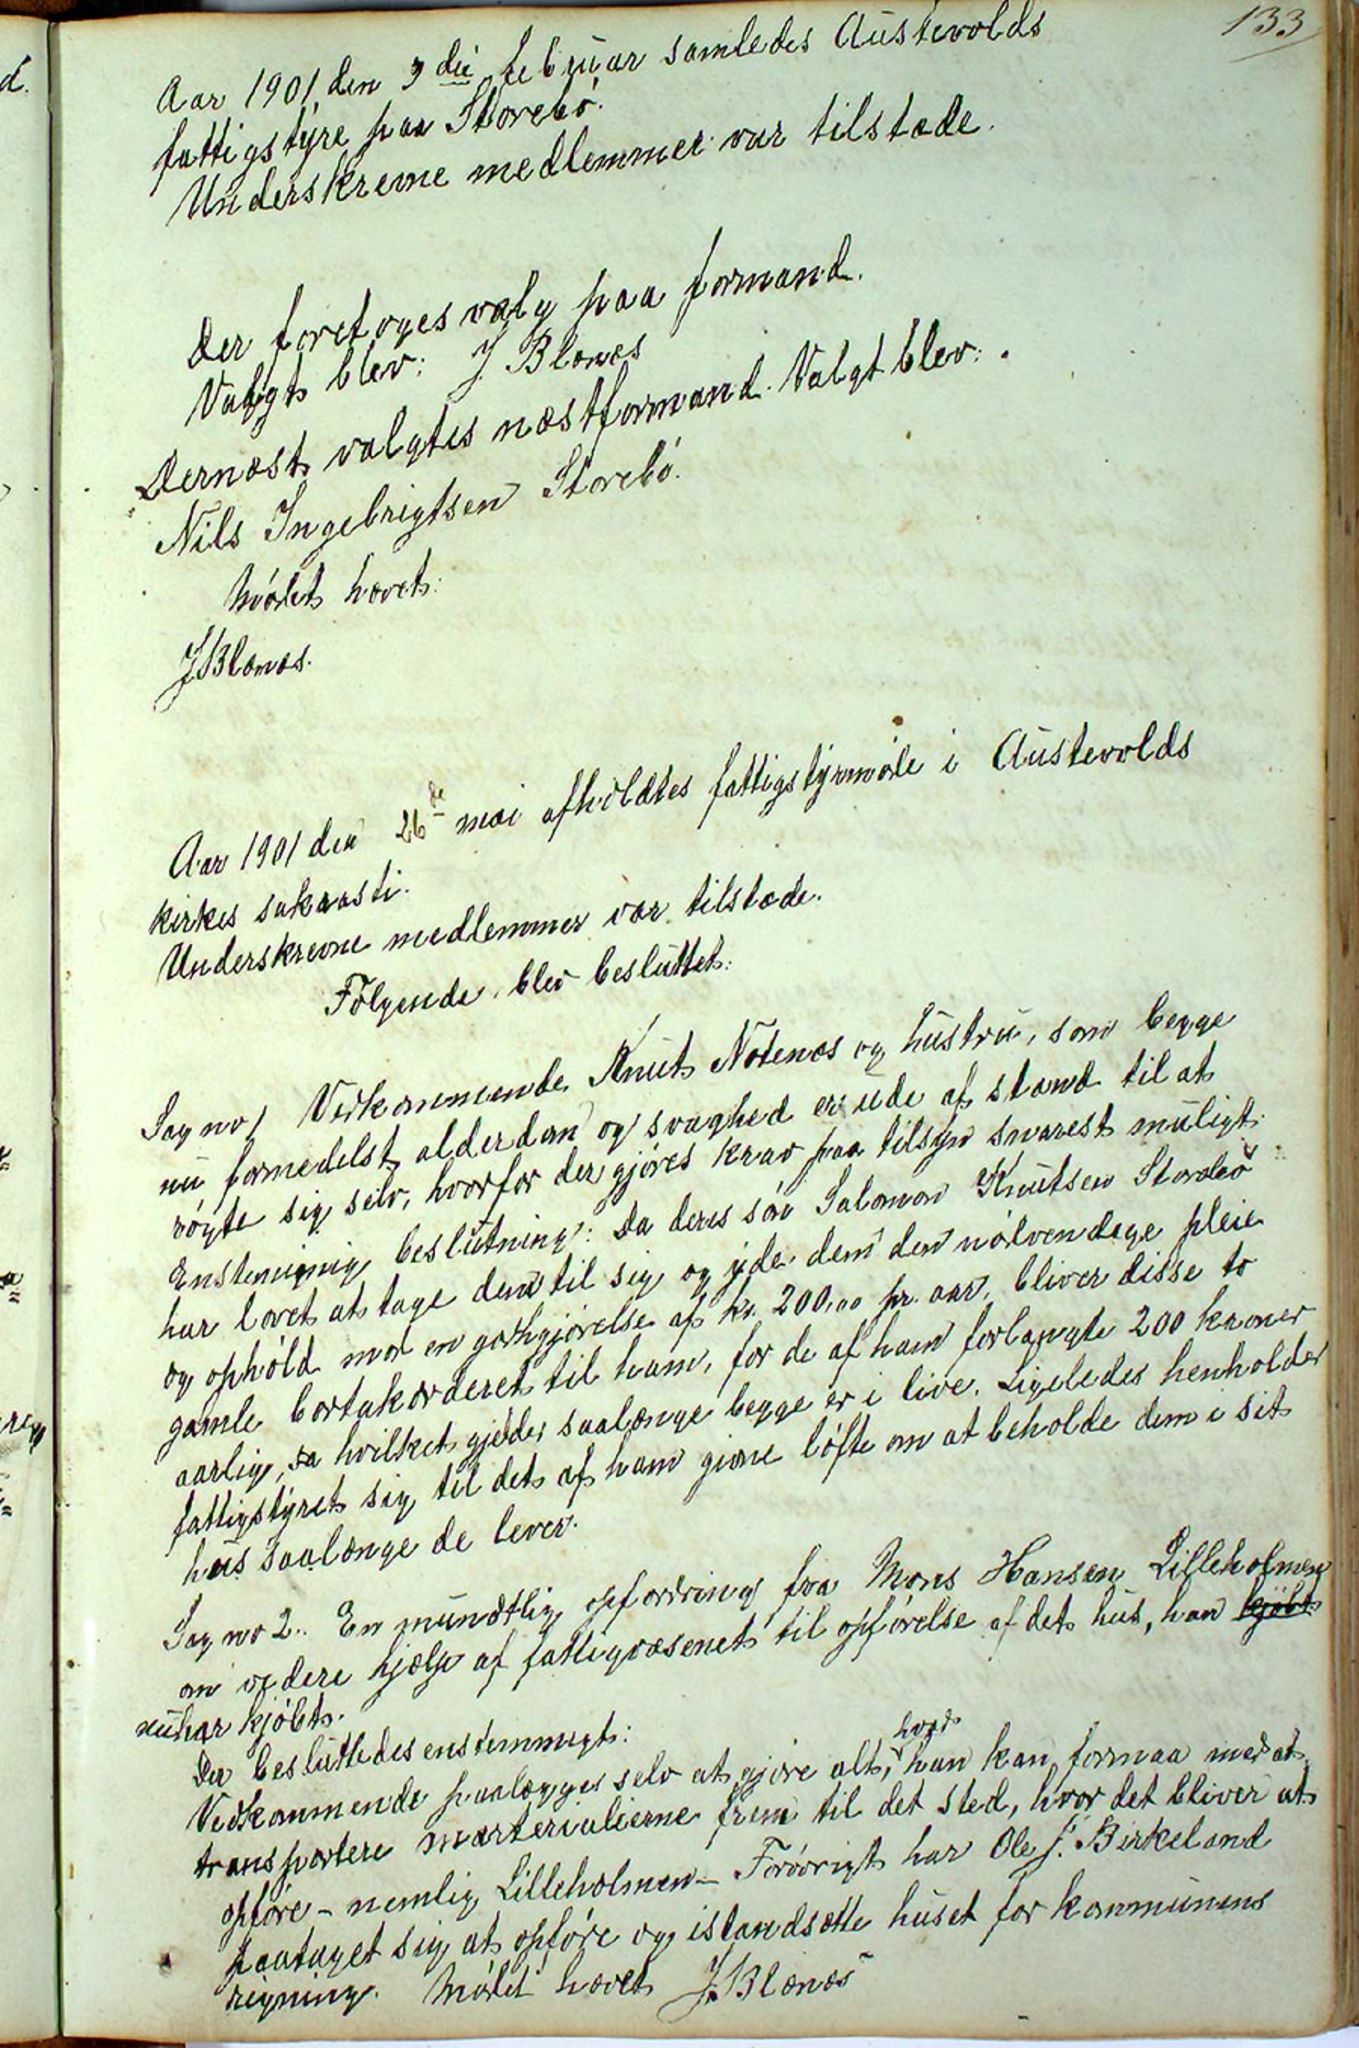 133
Aar 1901 den 3die februar samledes Austevolds
fattigstyre paa Storebø.
Underskrevne medlemmer var tilstæde.
Der foretoges valg paa formand.
Valgt blev: J Blænæs
Dernæst valgtes næstformand. Valgt blev:
Nils Ingebrigtsen Storebø.
Mødet hævet:
J Blænæs.
Aar 1901 den 26de mai afholdtes fattigstyrmøde i Austevolds
kirkes sakrasti.
Underskrevne medlemmer var tilstæde.
Følgende blev besluttet:
Sag no 1 Vedkommende Knut Nøtenæs og hustru, som begge
nu formedelst alderdom og svaghed er ude af stand til at
røgte sig selv, hvorfor der gjøres krav paa tilsyn snarest muligt.
Enstemmig beslutning: Da deres søn Salomon Knutsen Storebø
har lovet at tage dem til sig og yde dem den nødvendege pleie
og ophold mod en godtgjørelse af kr. 200,00 pr. aar, bliver disse to
gamle bortakorderet til ham, for de af ham forlangte 200 kroner
aarlig, hvilket gjelder saalænge begge er i live. Ligeledes henholder
fattigstyret sig til det af ham givne løfte om at beholde dem i sit
hus saalænge de lever.
Sag no 2. En mundtlig opfordring fra Mons Hansen Lilleholmen
om videre hjælp af fattigvæsenet til opførelse af det hus, han kjøbt
nu har kjøbt.
Der besluttedes enstemmigt:
hvad
Vedkommende paalægges selv at gjøre alt, han kan formaa med at
transportere marterialierne frem til det sted, hvor det bliver at
opføre – nemlig Lilleholmen – Forøvrigt har Ole J. Birkeland
paataget sig at opføre og istandsætte huset for kommunens
regning. Mødet hævet J. Blænæs